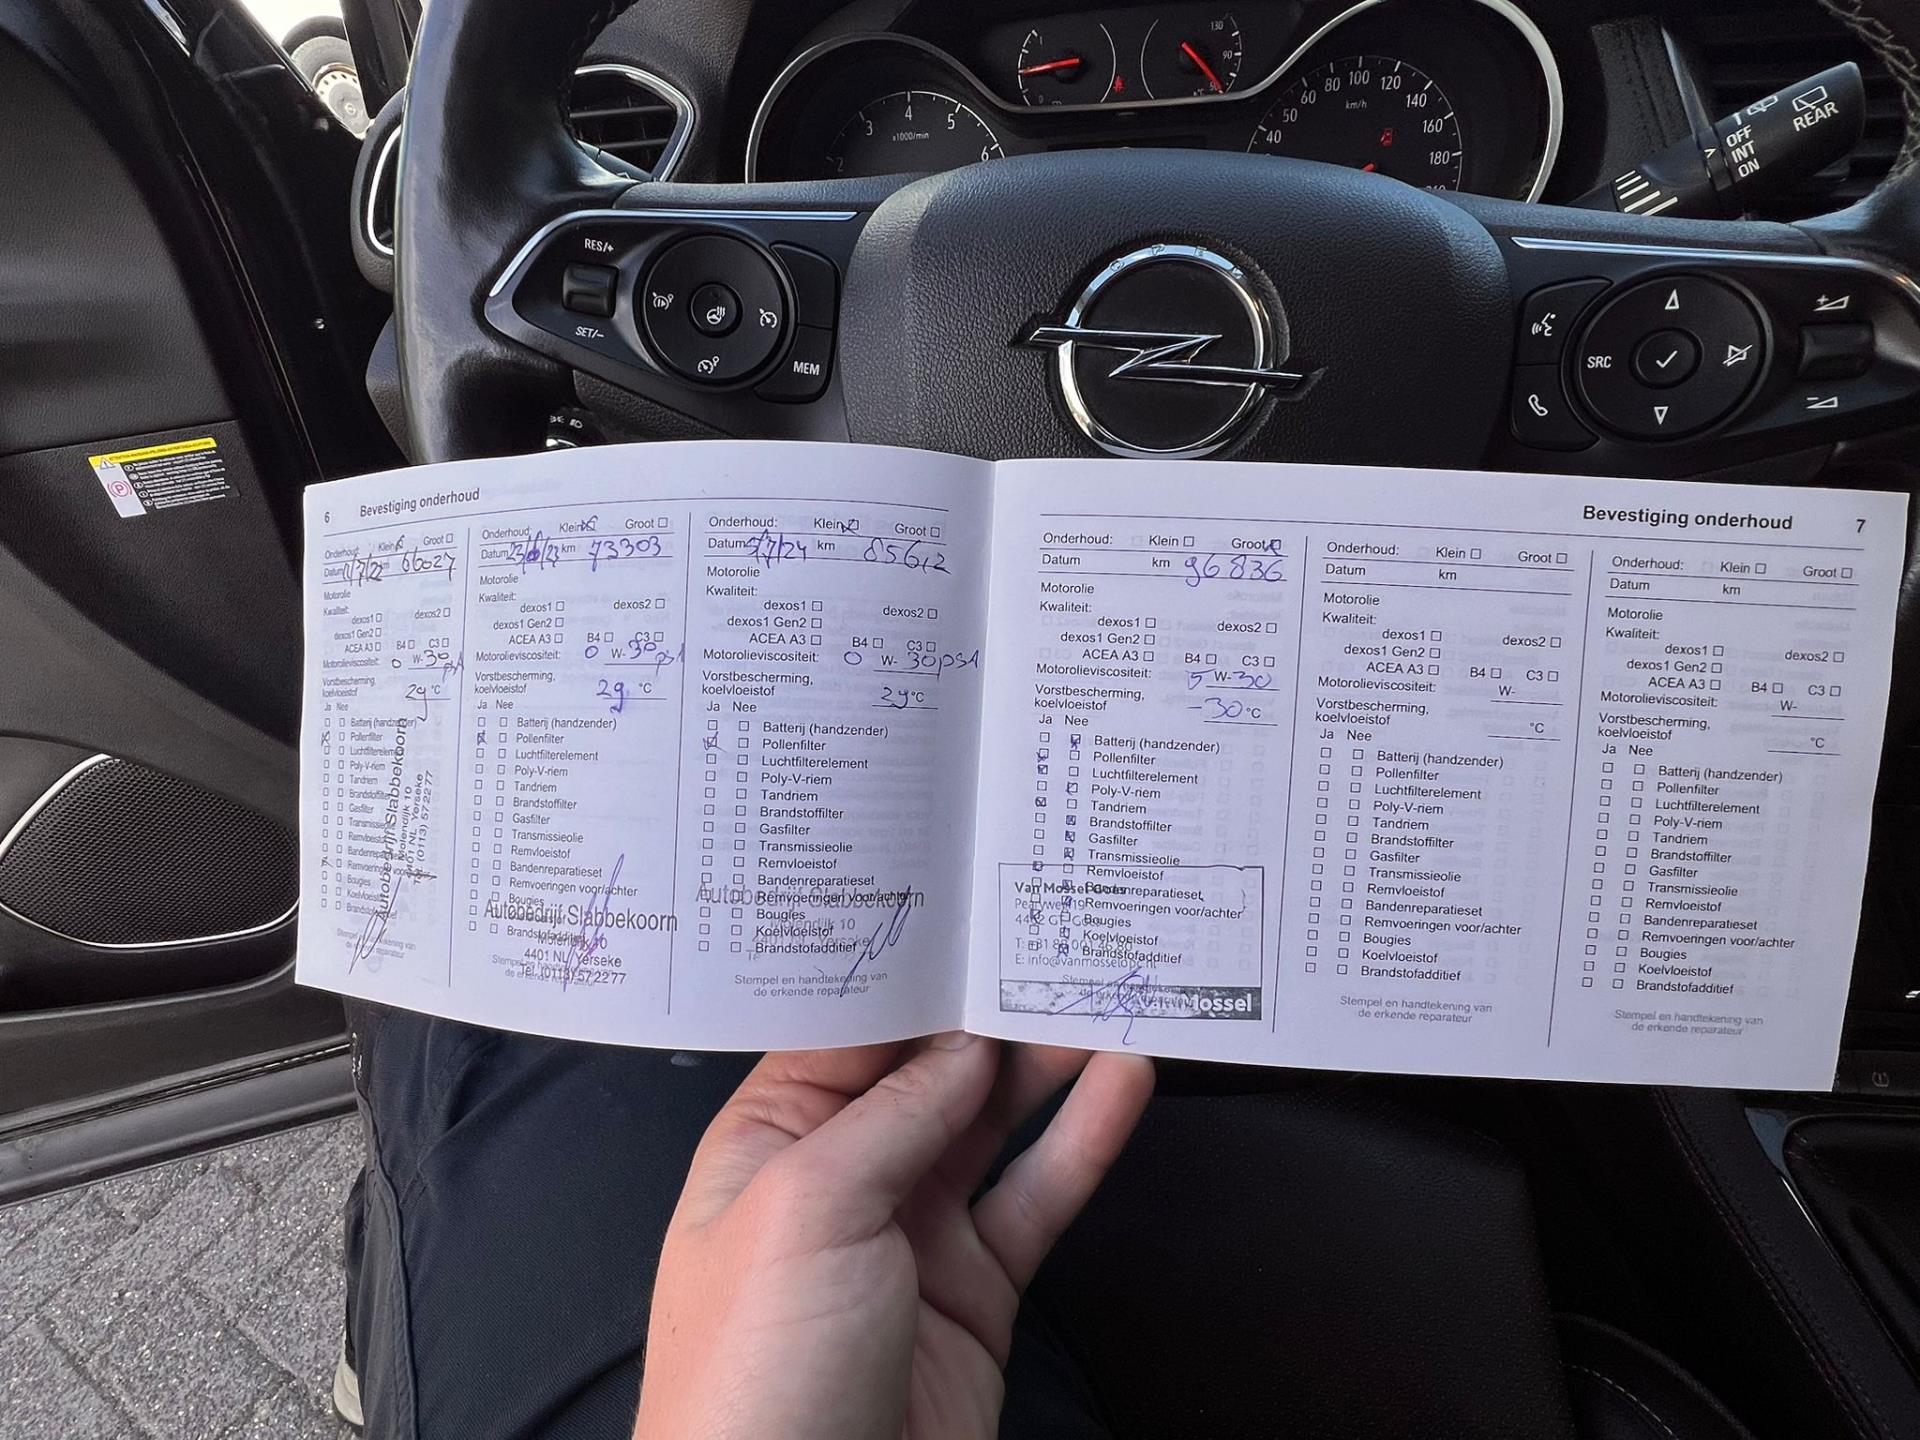 1
130
90
50
3
4
5
2
6
x1000/min
40
50
60
80
100
120
140
160
180
km/h
OFF
INT
ON
REAR
RES/+
SET/−
MEM
SRC
OPEL
6 Bevestiging onderhoud
Onderhoud: Klein Groot
Datum 66027
Motorolie
Kwaliteit:
dexos1 dexos2
dexos1 Gen2
ACEA A3 B4 C3
Motorolieviscositeit: 0 W-30 PSA
Vorstbescherming,
koelvloeistof 29 °C
Ja Nee
Batterij (handzender)
Pollenfilter
Luchtfilterelement
Poly-V-riem
Tandriem
Brandstoffilter
Gasfilter
Transmissieolie
Remvloeistof
Bandenreparatieset
Remvoeringen voor/achter
Bougies
Koelvloeistof
Brandstofadditief
Autobedrijf Slabbekoorn
Molendijk 10
4401 NL Yerseke
Tel. (0113) 572277
Stempel en handtekening van
de erkende reparateur
Onderhoud: Klein Groot
Datum km 73303
Motorolie
Kwaliteit:
dexos1 dexos2
dexos1 Gen2
ACEA A3 B4 C3
Motorolieviscositeit: 0 W-30 PSA
Vorstbescherming,
koelvloeistof 29 °C
Ja Nee
Batterij (handzender)
Pollenfilter
Luchtfilterelement
Poly-V-riem
Tandriem
Brandstoffilter
Gasfilter
Transmissieolie
Remvloeistof
Bandenreparatieset
Remvoeringen voor/achter
Bougies
Brandstofadditief
Autobedrijf Slabbekoorn
Molendijk 10
4401 NL Yerseke
Tel. (0113) 572277
Onderhoud: Klein Groot
Datum 5/7/24 km
Motorolie
Kwaliteit:
dexos1 dexos2
dexos1 Gen2
ACEA A3 B4 C3
Motorolieviscositeit: 0 W-30 PSA
Vorstbescherming,
koelvloeistof 29 °C
Ja Nee
Batterij (handzender)
Pollenfilter
Luchtfilterelement
Poly-V-riem
Tandriem
Brandstoffilter
Gasfilter
Transmissieolie
Remvloeistof
Bandenreparatieset
Remvoeringen voor/achter
Bougies
Koelvloeistof
Brandstofadditief
Autobedrijf Slabbekoorn
Stempel en handtekening van
de erkende reparateur
Bevestiging onderhoud 7
Onderhoud: Klein Groot
Datum km 96836
Motorolie
Kwaliteit:
dexos1 dexos2
dexos1 Gen2
ACEA A3 B4 C3
Motorolieviscositeit: 5 W-30
Vorstbescherming,
koelvloeistof -30 °C
Ja Nee
Batterij (handzender)
Pollenfilter
Luchtfilterelement
Poly-V-riem
Tandriem
Brandstoffilter
Gasfilter
Transmissieolie
Remvloeistof
Bandenreparatieset
Remvoeringen voor/achter
Bougies
Koelvloeistof
Brandstofadditief
Van Mossel Goes
Mossel
Onderhoud: Klein Groot
Datum km
Motorolie
Kwaliteit:
dexos1 dexos2
dexos1 Gen2
ACEA A3 B4 C3
Motorolieviscositeit: W-
Vorstbescherming,
koelvloeistof °C
Ja Nee
Batterij (handzender)
Pollenfilter
Luchtfilterelement
Poly-V-riem
Tandriem
Brandstoffilter
Gasfilter
Transmissieolie
Remvloeistof
Bandenreparatieset
Remvoeringen voor/achter
Bougies
Koelvloeistof
Brandstofadditief
Stempel en handtekening van
de erkende reparateur
Onderhoud: Klein Groot
Datum km
Motorolie
Kwaliteit:
dexos1 dexos2
dexos1 Gen2
ACEA A3 B4 C3
Motorolieviscositeit: W-
Vorstbescherming,
koelvloeistof °C
Ja Nee
Batterij (handzender)
Pollenfilter
Luchtfilterelement
Poly-V-riem
Tandriem
Brandstoffilter
Gasfilter
Transmissieolie
Remvloeistof
Bandenreparatieset
Remvoeringen voor/achter
Bougies
Koelvloeistof
Brandstofadditief
Stempel en handtekening van
de erkende reparateur